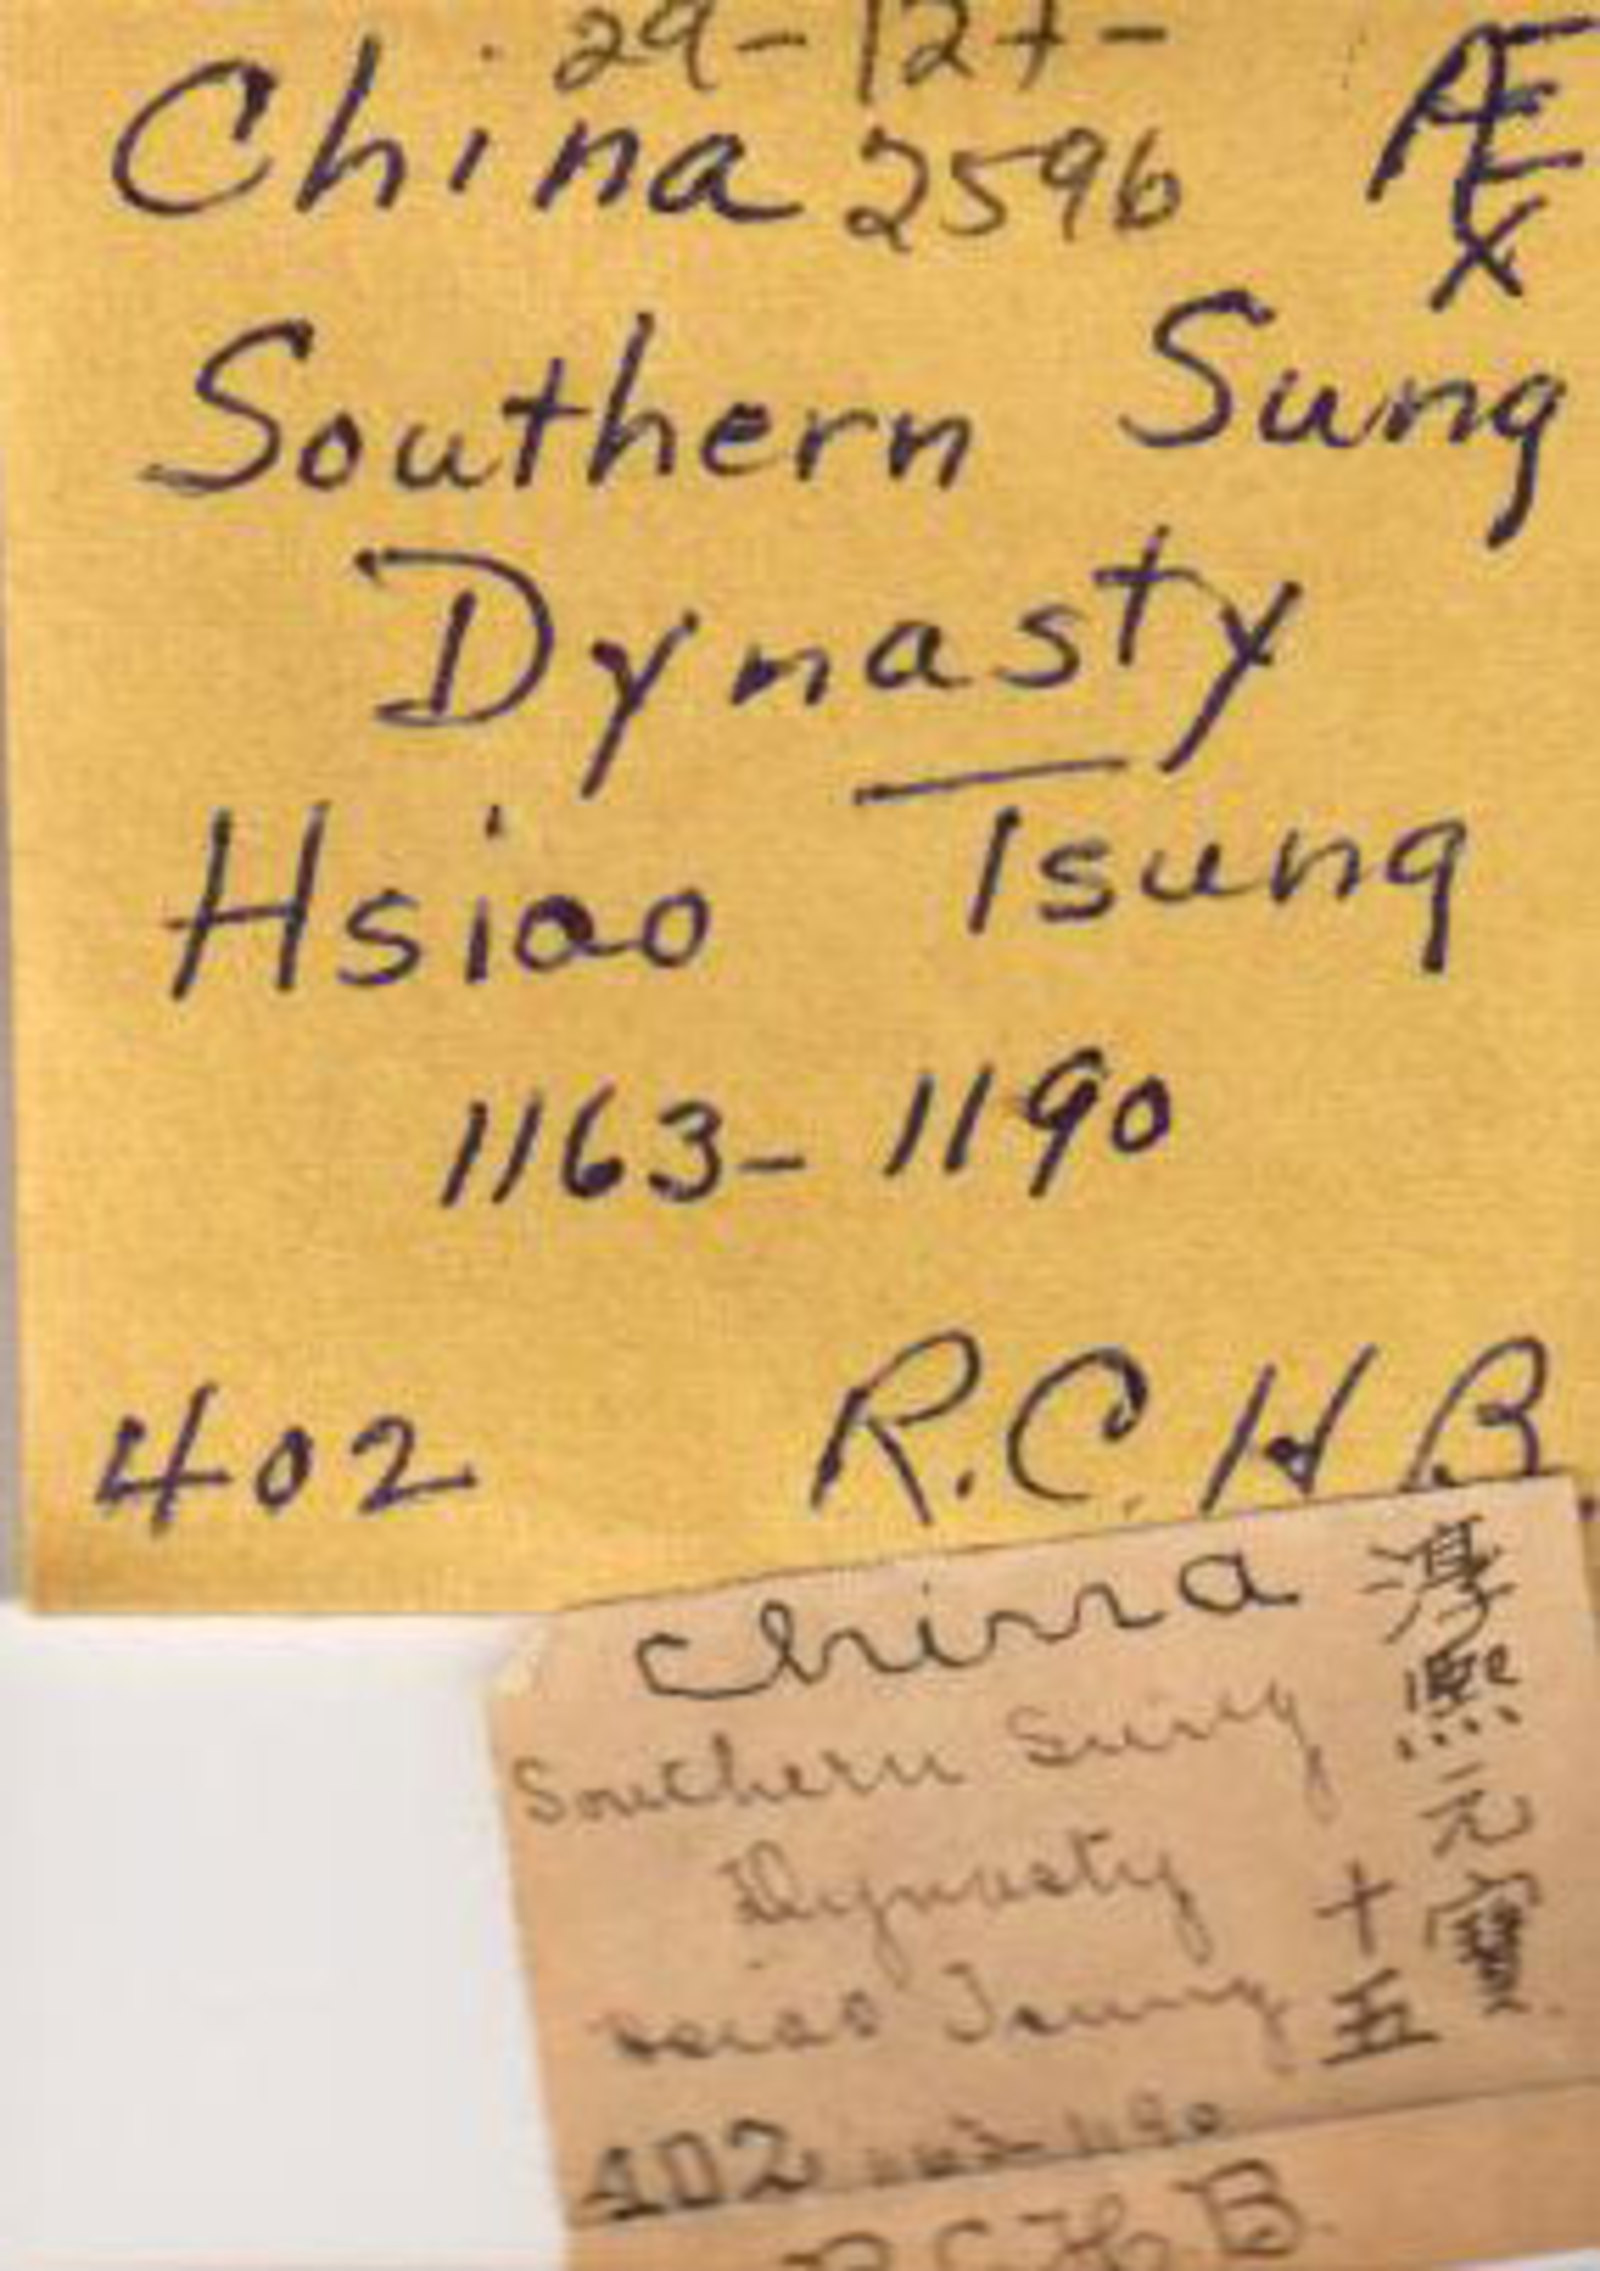 29-127-
China 2596 Æ
X
Southern Sung
Dynasty
Hsiao Tsung
1163-1190
402 R.C.H.B.
China
Southern Sung
Dynasty
Hsiao Tsung
402 1163-1190
R.C.H.B.
淳熙元寶
十五